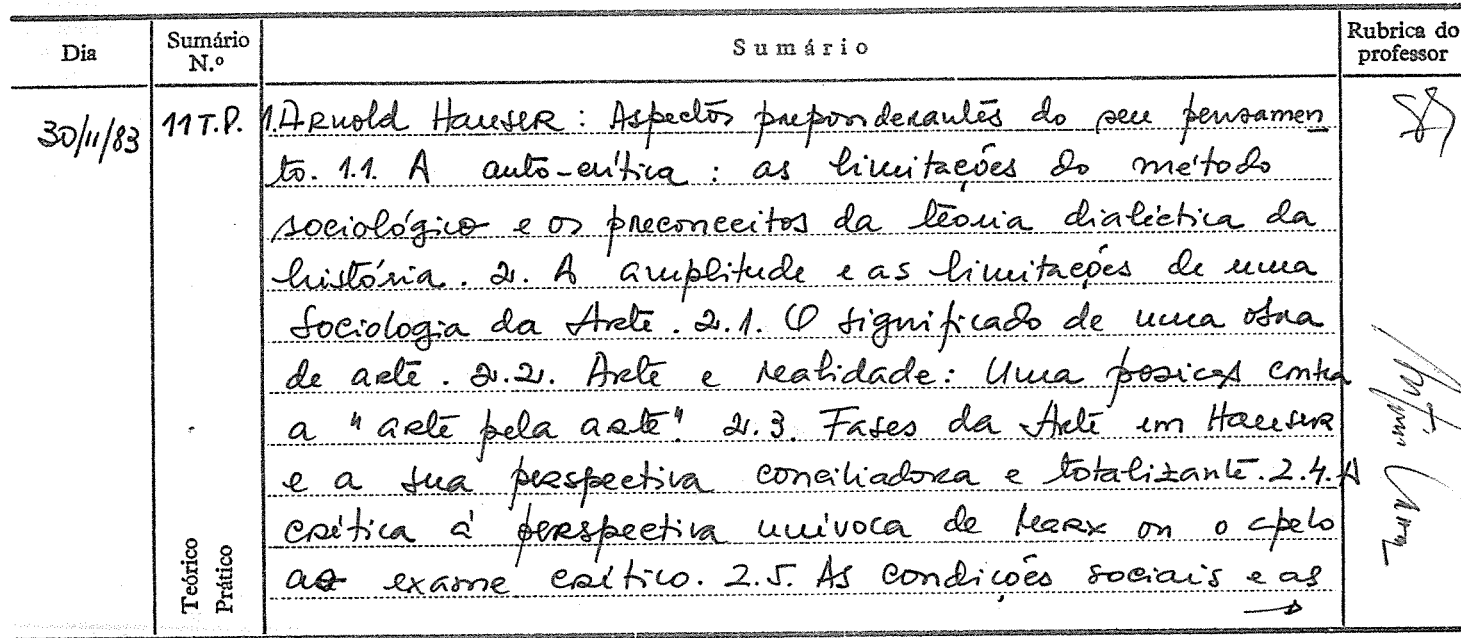 Dia
Sumário N.º
Sumário
Rubrica do professor
30/11/83
11 T.P.
1. Arnold Hauser: Aspectos preponderantes do seu pensamen
to. 1.1. A auto-crítica: as limitações do método
sociológico e os preconceitos da teoria dialéctica da
história. 2. A amplitude e as limitações de uma
Sociologia da Arte. 2.1. O significado de uma obra
de arte. 2.2. Arte e realidade: Uma posição contra
a "arte pela arte" 2.3. Fases da Arte em Hauser
e a sua perspectiva conciliadora e totalizante. 2.4. A
crítica à perspectiva unívoca de Marx ou o apelo
ao exame crítico. 2.5. As condições sociais e as
→
Teórico
Prático